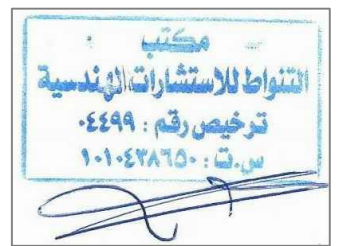 مكتب
التنواط للاستشارات الهندسية
ترخيص رقم : ٠٤٤٩٩
س.ت : ١٠١٠٤٣٨٦٥٠